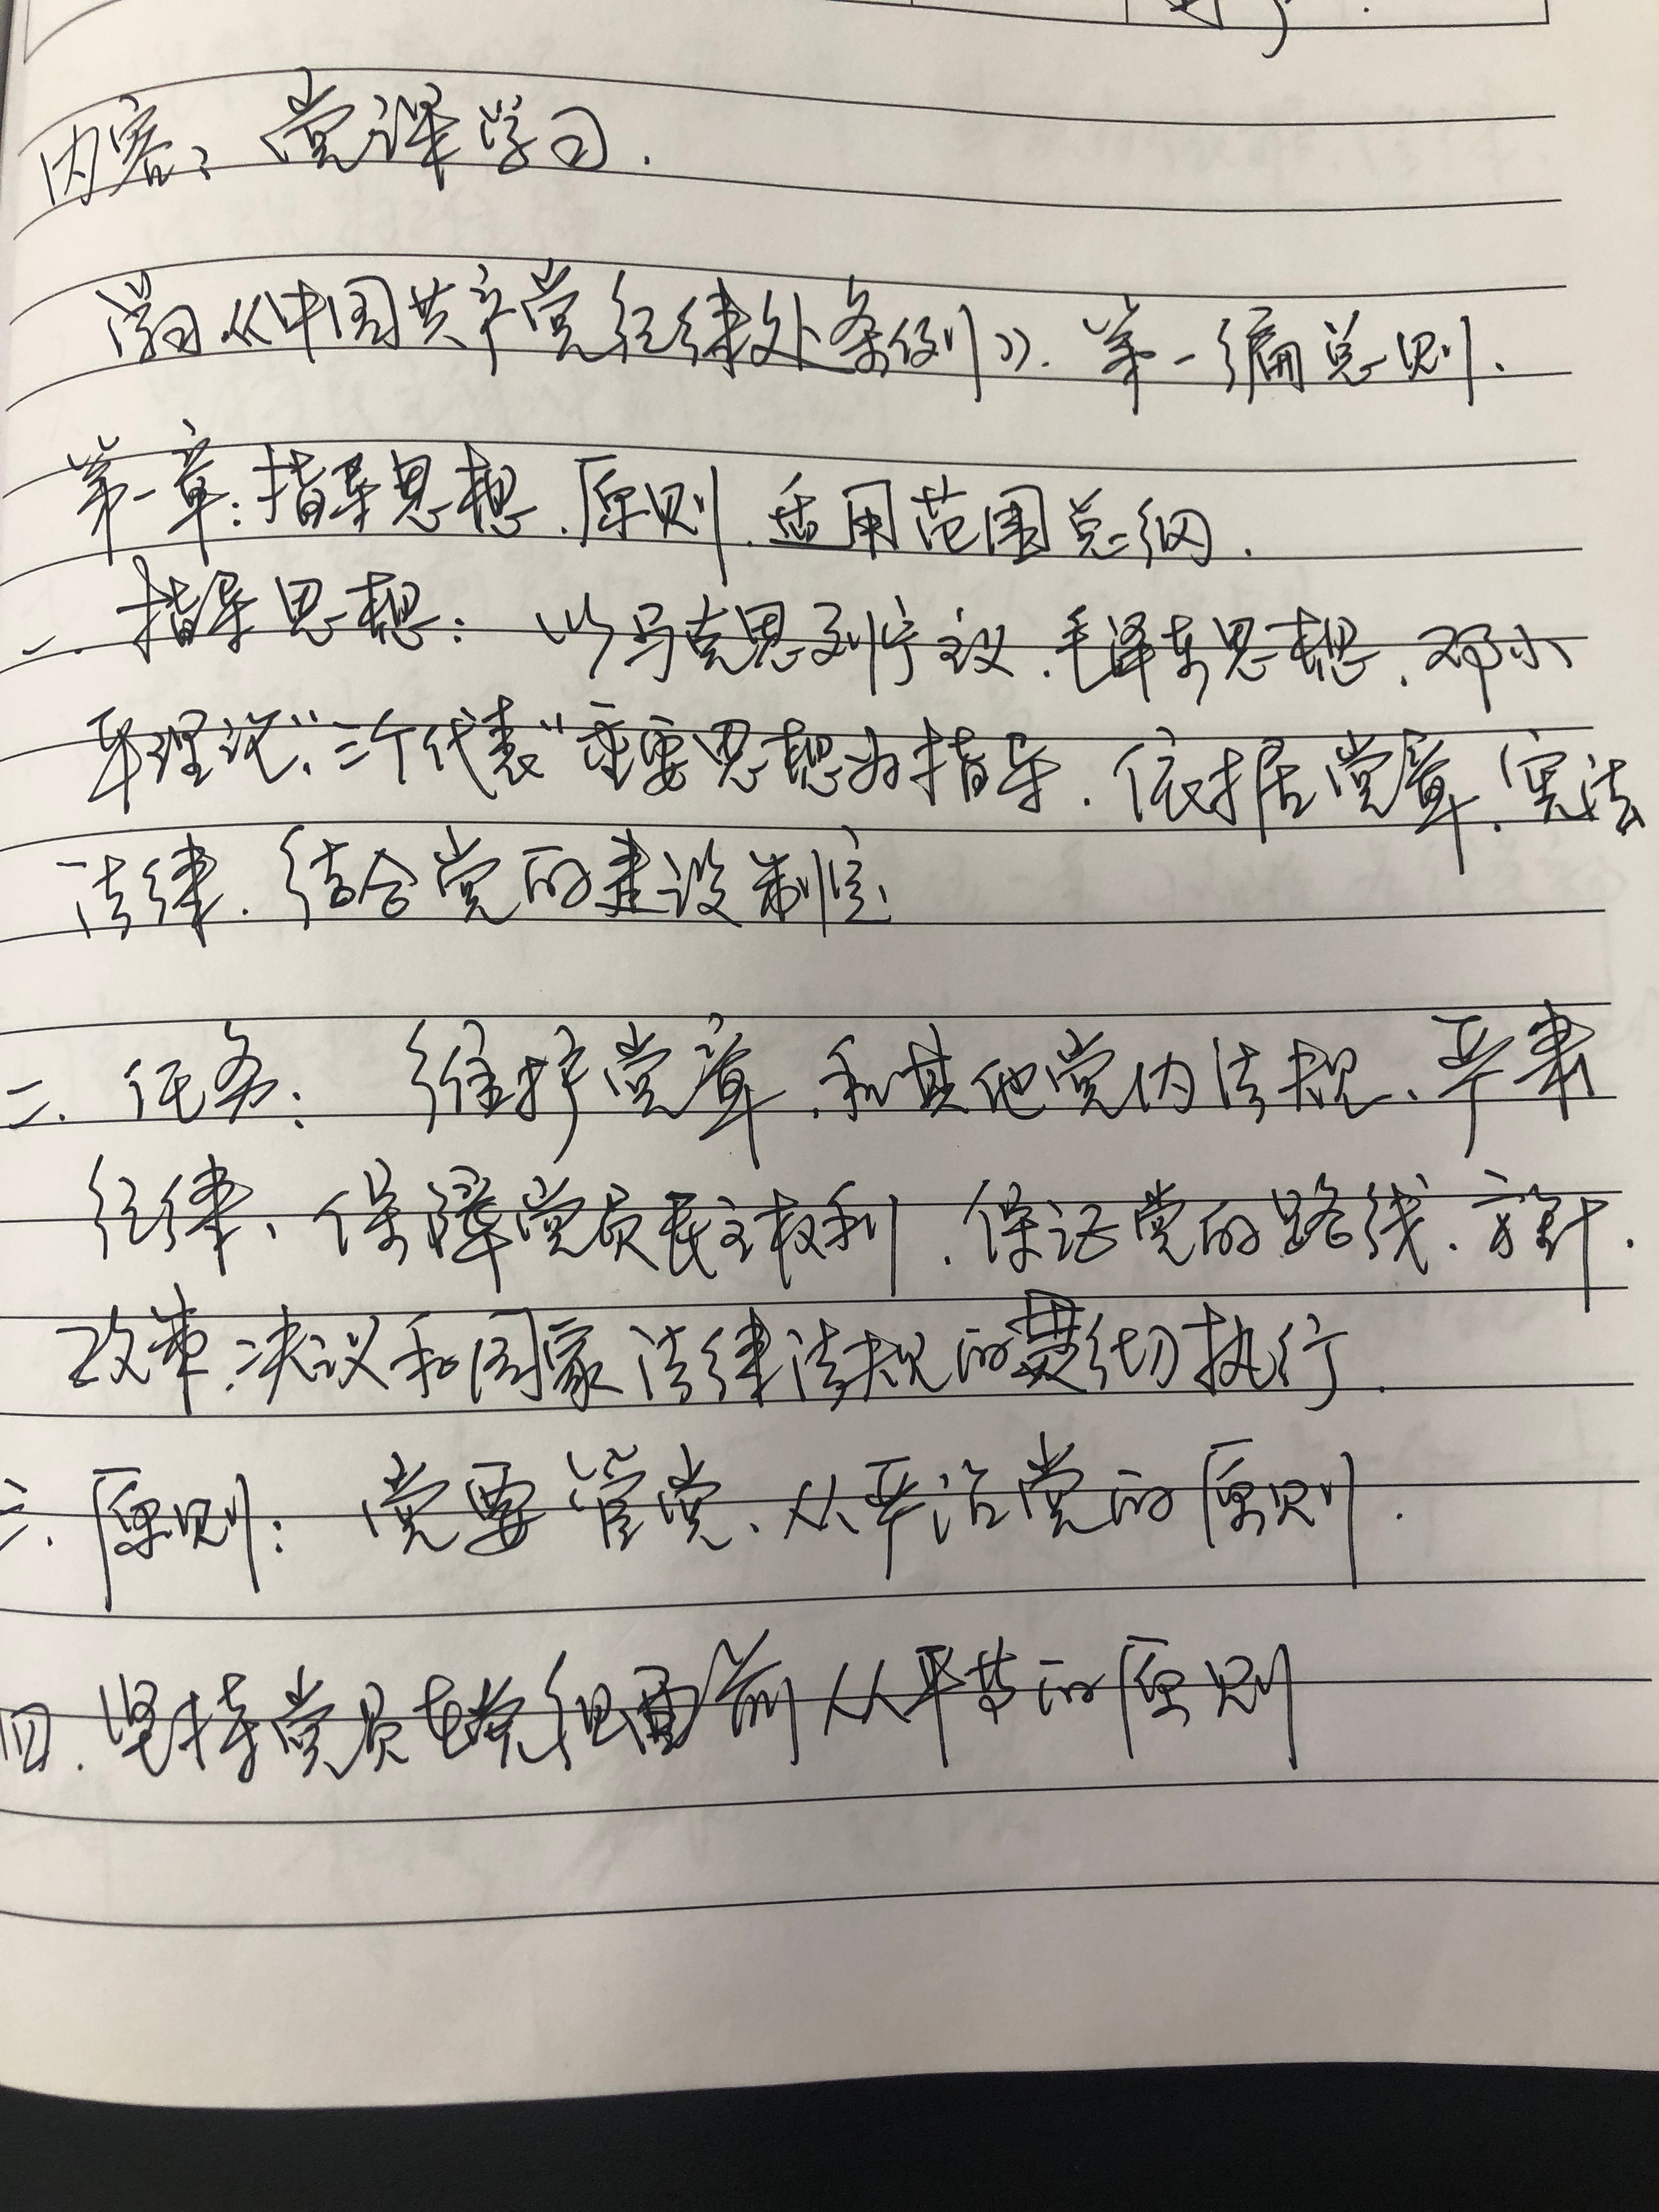 内容：党课学习.
学习《中国共产党纪律处条例》.第一编总则.
第一章:指导思想.原则.适用范围总纲.
一.指导思想：以马克思列宁主义.毛泽东思想.邓小
平理论、“三个代表”重要思想为指导.依据党章.宪法
法律.结合党的建设制定
二.任务：维护党章.和其他党内法规、严肃
纪律、保障党员民主权利.保证党的路线.方针.
政策.决议和国家法律法规的贯彻执行.
三.原则：党要管党、从严治党的原则.
四.坚持党员在党纪面前从平等的原则